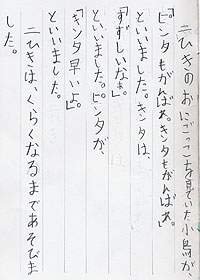 二ひきのおにごっこを見ていた小鳥が、
「ピンタもがんばれ。キンタもがんばれ」
といいました。キンタは、
「すずしいなあ。」
といいました。ピンタが、
「キンタ早いよ。」
といいました。
二ひきは、くらくなるまであそびま
した。